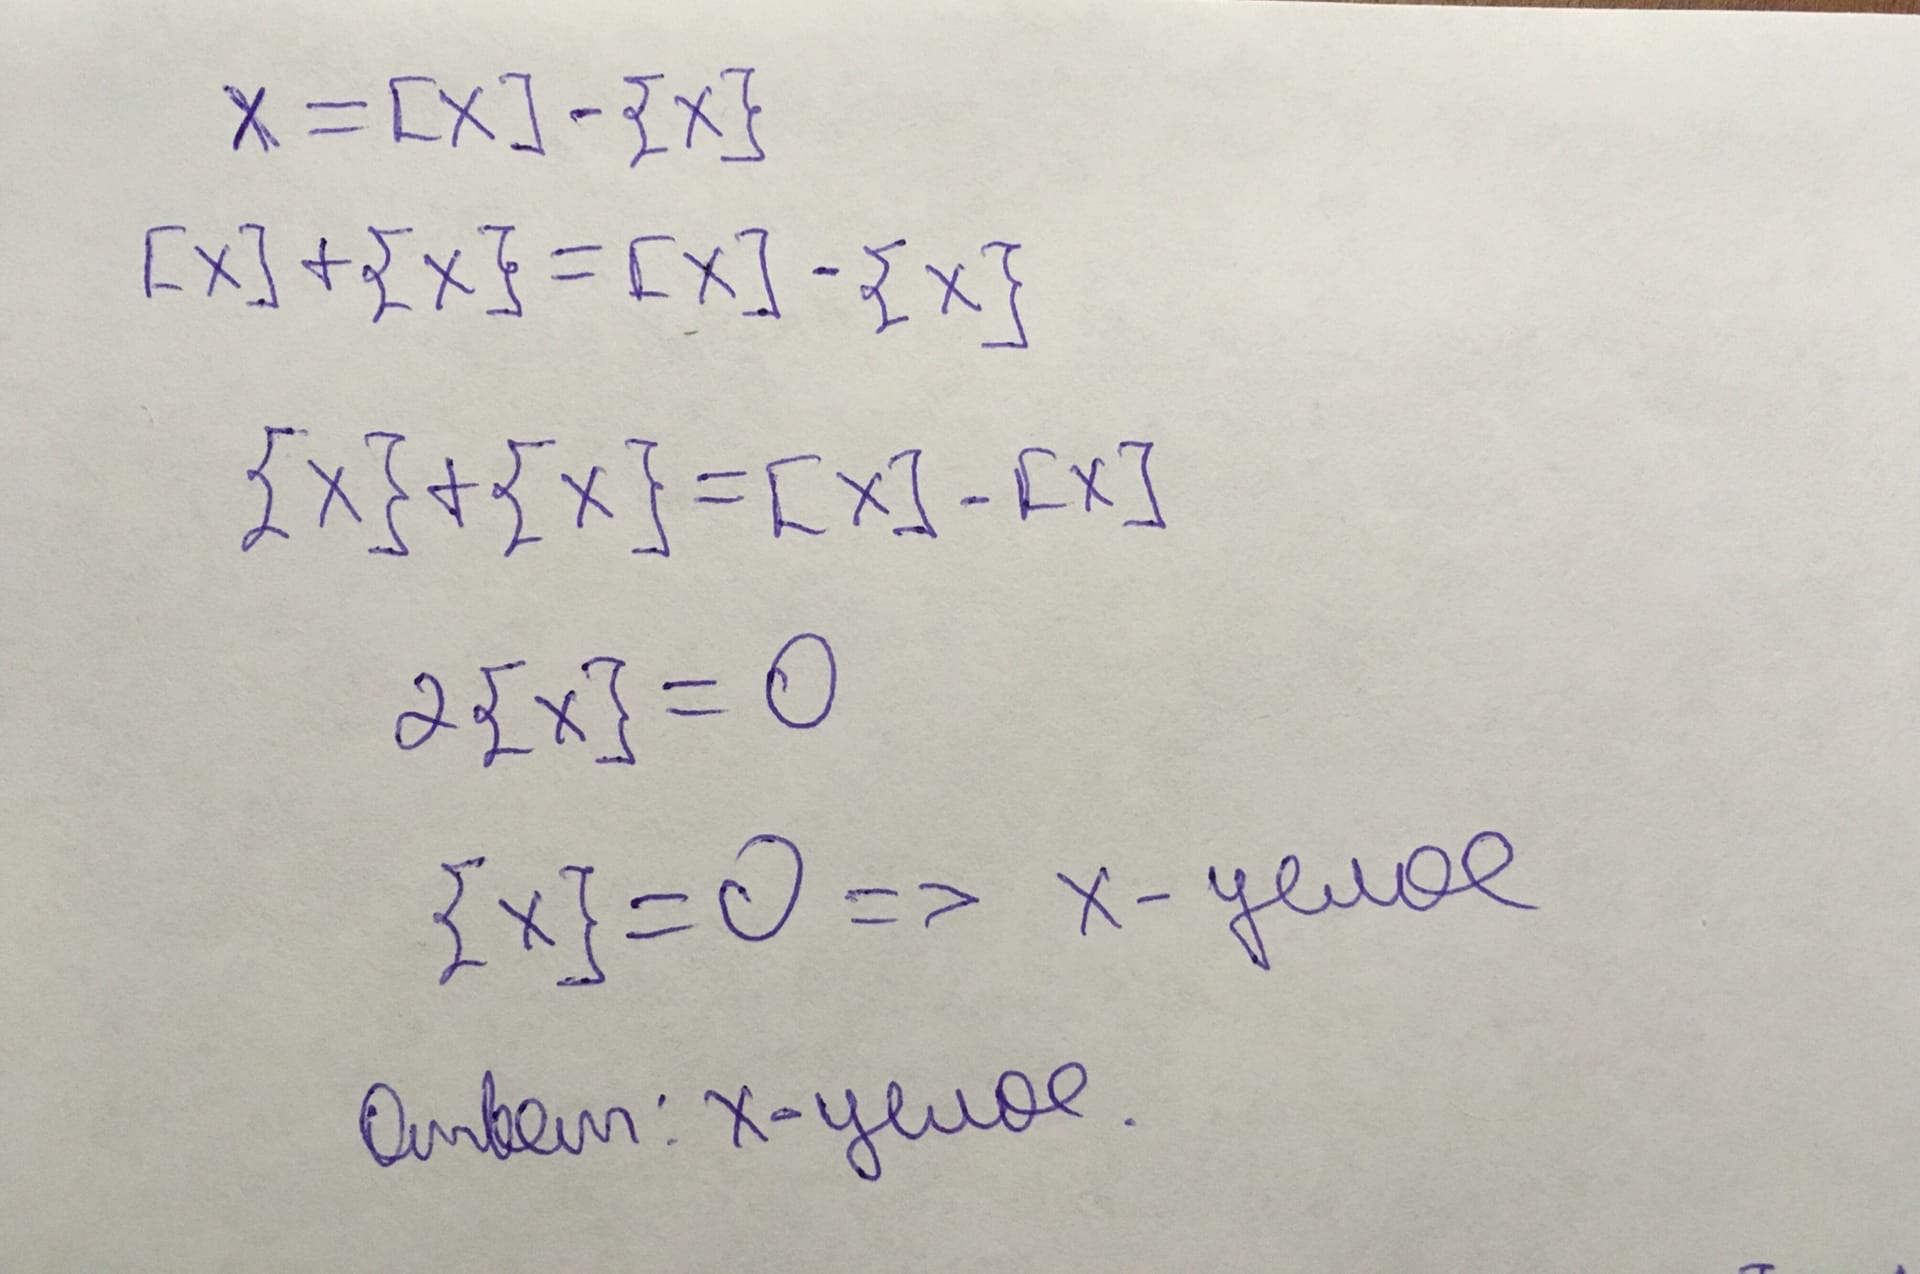 x = [x] - {x}
[x] + {x} = [x] - {x}
{x} + {x} = [x] - [x]
2{x} = 0
{x} = 0 => x - целое
Ответ: x - целое.